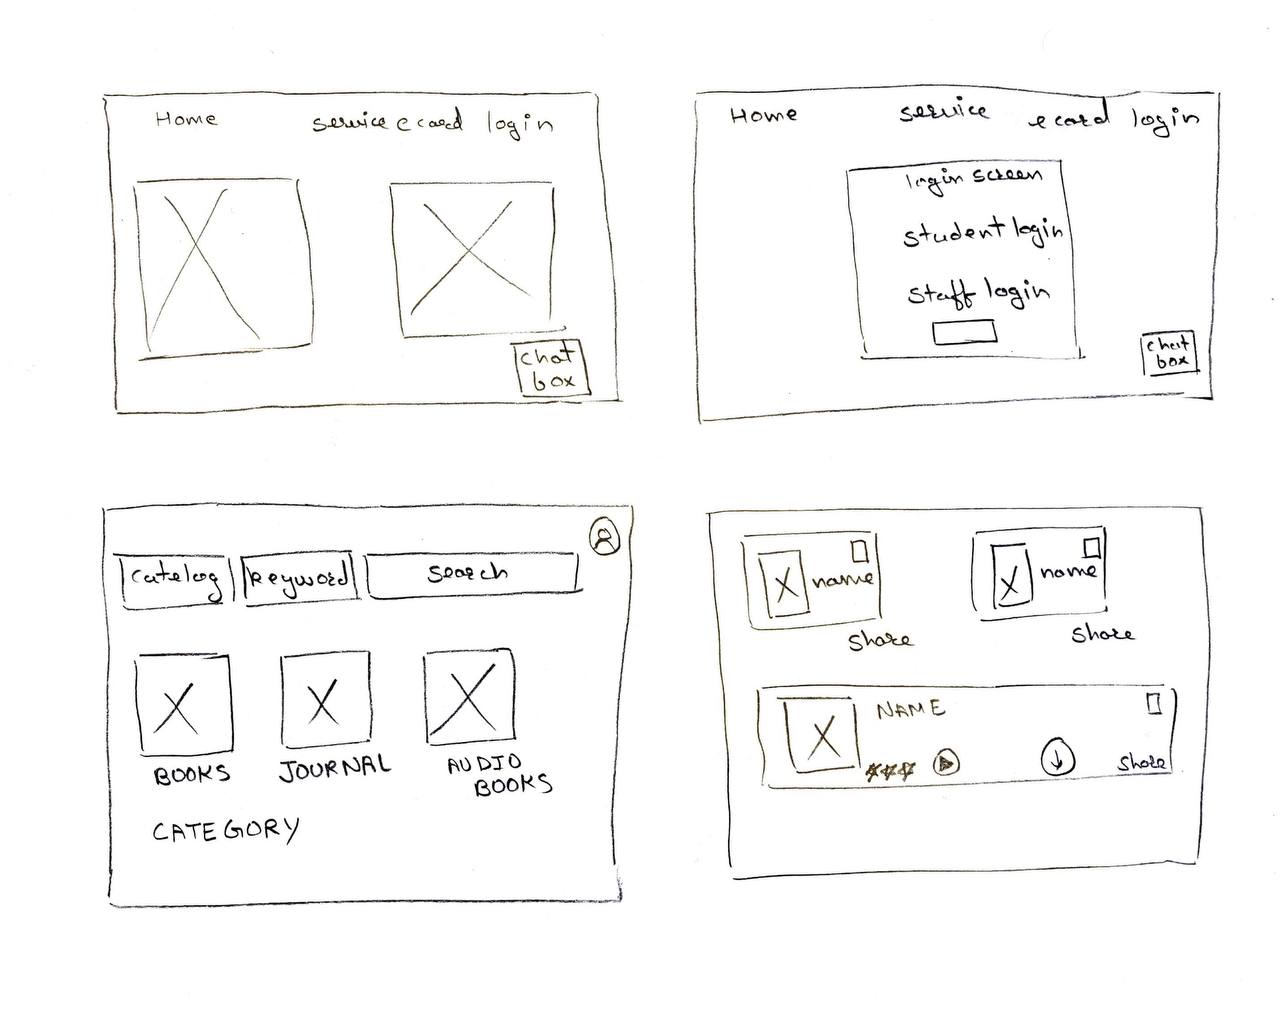 Home service ecard login
chat
box
Home service ecard login
login screen
student login
staff login
chat
box
catelog keyword search
BOOKS JOURNAL AUDIO
BOOKS
CATEGORY
name name
share share
NAME
share